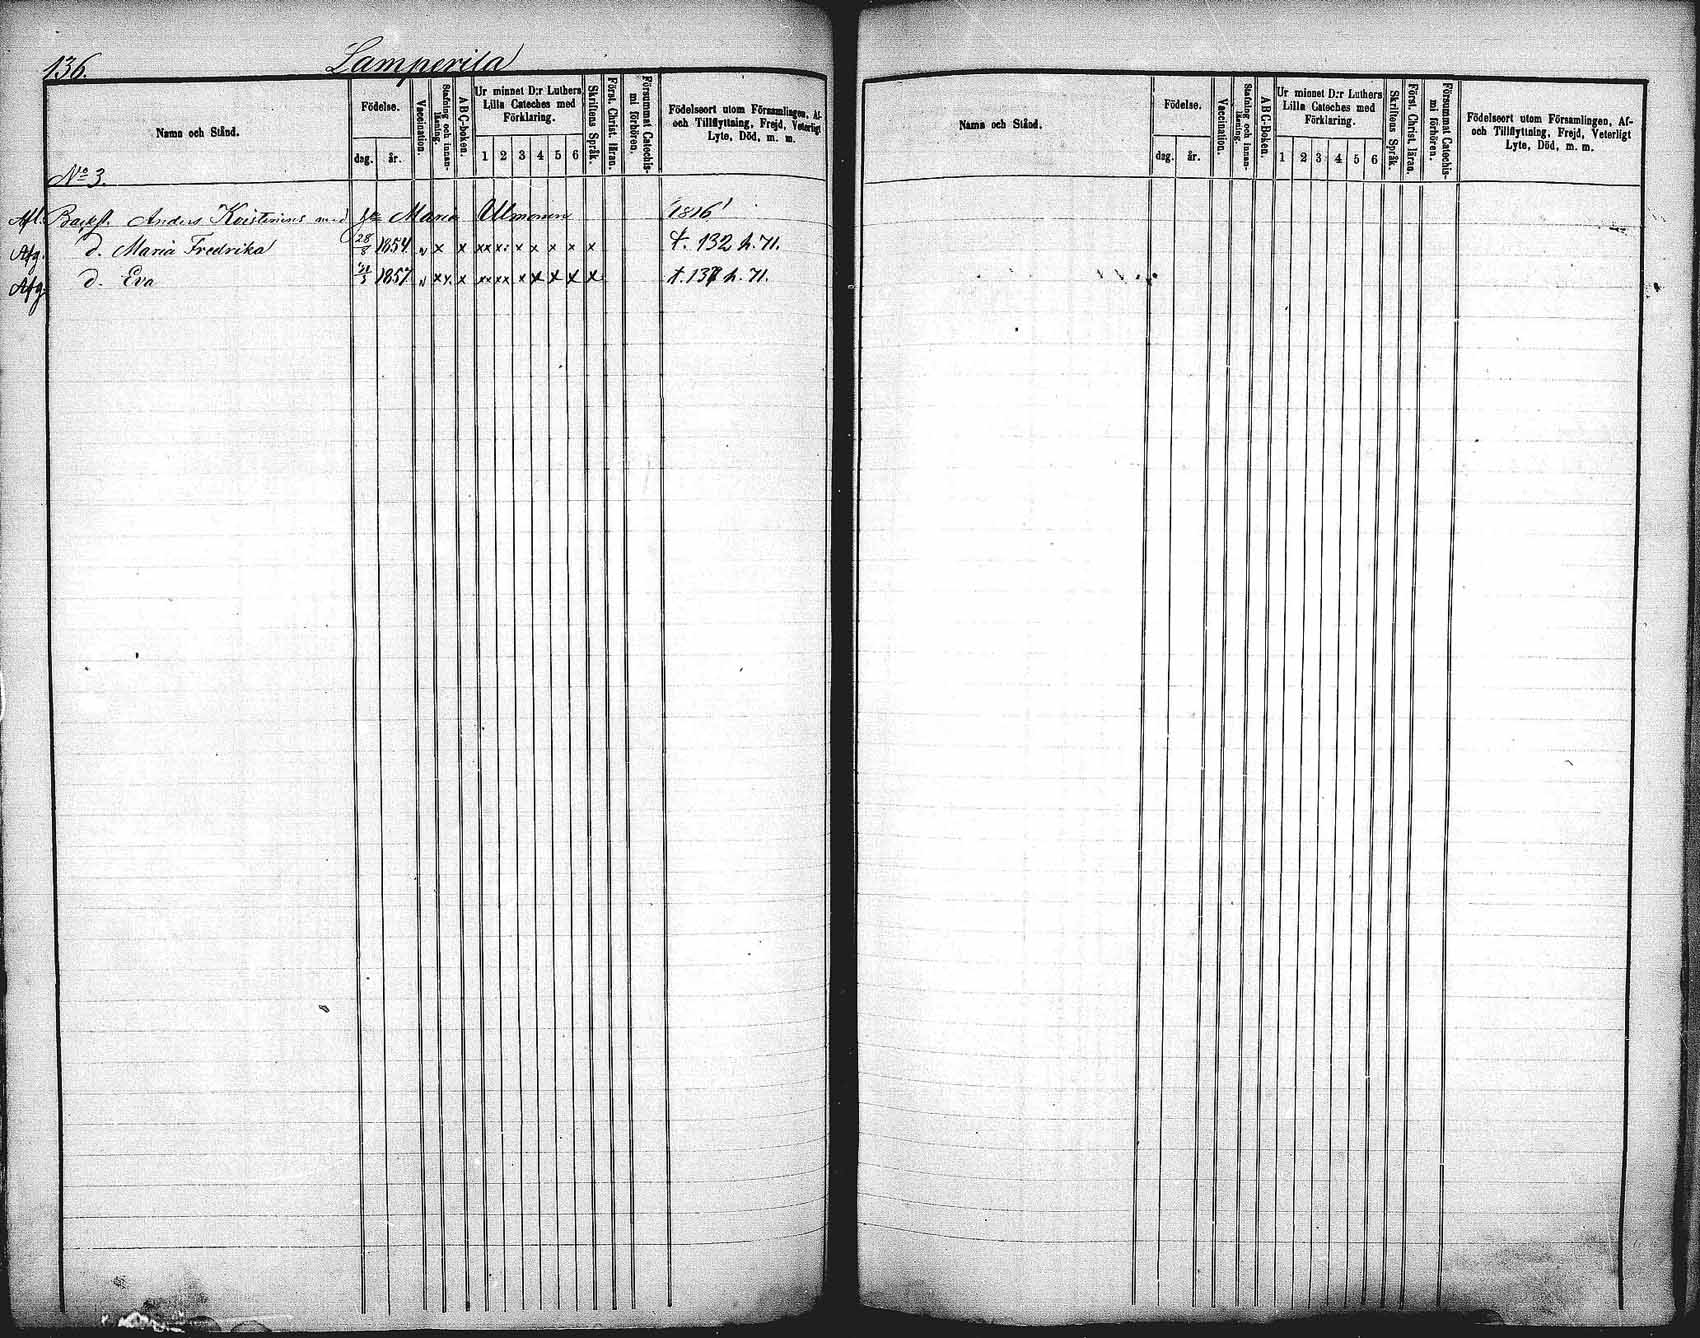 136.
Lamperila
Namn och Stånd.
Födelse.
dag. år.
Vaccination.
Stafning och innan-läsning.
ABC-boken.
Ur minnet D:r Luthers Lilla Cateches med Förklaring.
1 2 3 4 5 6
Skriftens Språk.
Först. Christ. läran.
Försummat Catechis-mi förhören.
Födelseort utom Församlingen, Af- och Tillflyttning, Frejd, Veterligt Lyte, Död, m. m.
No 3.
Anders Keistinens med Maria Ullmonen 1816
Afg. d. Maria Fredrika 28/8 1854 v x x x x x : x x x x x t. 132 h. 71.
Afg. d. Eva 1857 v x x x x x x x x x x x x t. 137 h. 71.
Namn och Stånd.
Födelse.
dag. år.
Vaccination.
Stafning och innan-läsning.
ABC-Boken.
Ur minnet D:r Luthers Lilla Cateches med Förklaring.
1 2 3 4 5 6
Skriftens Språk.
Först. Christ. läran.
Försummat Catechis-mi förhören.
Födelseort utom Församlingen, Af- och Tillflyttning, Frejd, Veterligt Lyte, Död, m. m.